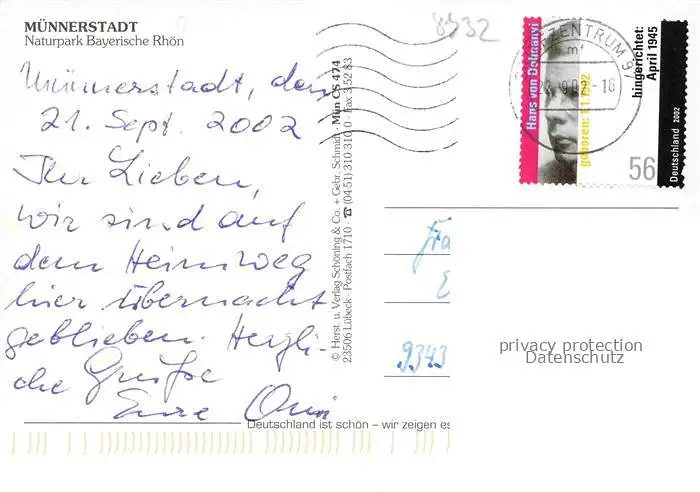 MÜNNERSTADT
Naturpark Bayerische Rhön
8932
Münnerstadt, den
21. Sept. 2002
Ihr Lieben,
wir sind auf
dem Heimweg
hier übernacht
geblieben. Herzli-
che Grüße
Eure Omi
Deutschland ist schön – wir zeigen es
© Herst. u. Verlag Schöning & Co. + Gebr. Schmidt · Mün CS 474
23506 Lübeck · Postfach 1710 · ☎ (04 51) 310 310 · Fax 3 52 83
Hans von Dohnanyi
geboren: 1.1.1902
hingerichtet:
April 1945
56
Deutschland 2002
BRIEFZENTRUM 97
mf
-16
Fra
E
9343
privacy protection
Datenschutz